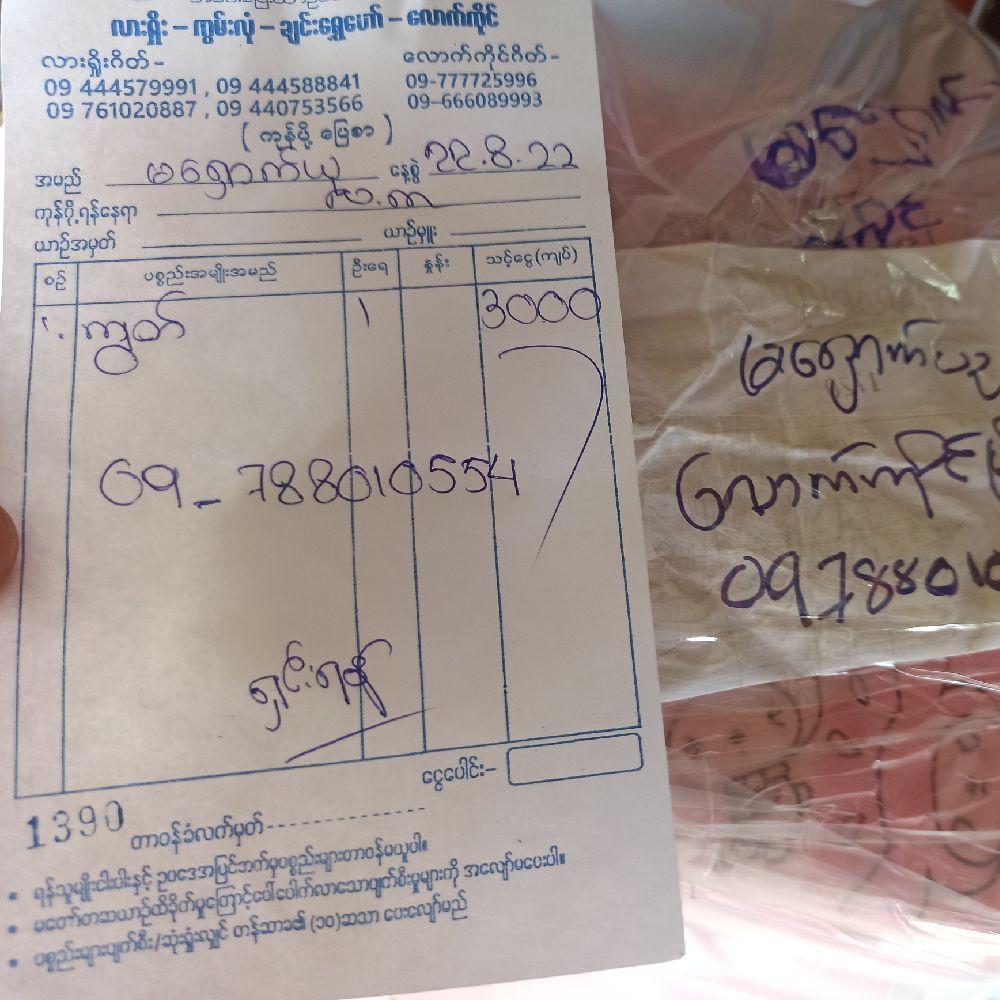 လားရှိုး – ကွမ်းလုံ – ချင်းရွှေဟော် – လောက်ကိုင်
လားရှိုးဂိတ် –
09 444579991 , 09 444588841
09 761020887 , 09 440753566
လောက်ကိုင်ဂိတ် –
09-777725996
09-666089993
( ကုန်ပို့ ပြေစာ )
အမည် မရှောက်ယူ နေ့စွဲ 22.8.22
ကုန်ပို့ရန်နေရာ လ.က
ယာဉ်အမှတ် ယာဉ်မှူး
စဉ် ပစ္စည်းအမျိုးအမည် ဦးရေ နှုန်း သင့်ငွေ(ကျပ်)
၁. ကျွတ် ၁ 3000
09-788010554
ရှင်းရန်
ငွေပေါင်း-
1390 တာဝန်ခံလက်မှတ်
• ရန်သူမျိုးငါးပါးနှင့် ဥပဒေအပြင်ဘက်မှပစ္စည်းများတာဝန်မယူပါ။
• မတော်တဆယာဉ်ထိခိုက်မှုကြောင့်ပေါ်ပေါက်လာသောပျက်စီးမှုများကို အလျော်မပေးပါ။
• ပစ္စည်းများပျက်စီး/ဆုံးရှုံးလျှင် တန်ဆာခ၏ (၁၀)ဆသာ ပေးလျော်မည်
လောက်ကိုင်
09788010